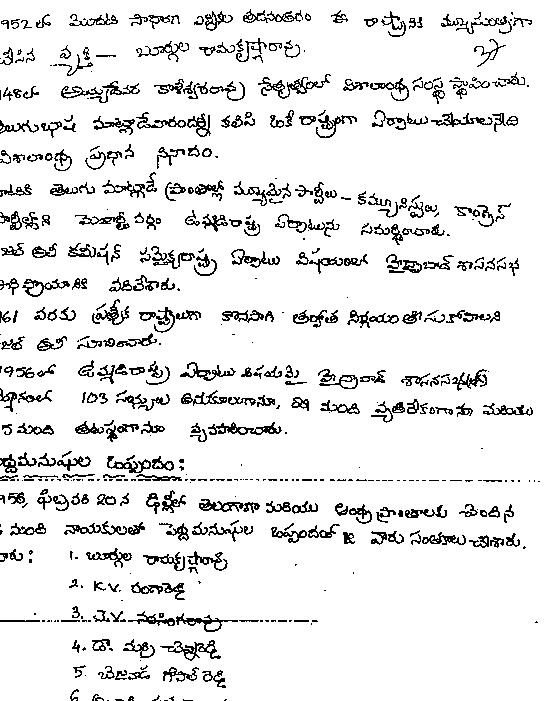 952 లో మొదటి సాధారణ ఎన్నికల తదనంతరం ఈ రాష్ట్రానికి ముఖ్యమంత్రిగా
చేసిన వ్యక్తి — బూర్గుల రామకృష్ణారావు.
948లో అయ్యదేవర కాళేశ్వరరావు నేతృత్వంలో విశాలాంధ్ర సంస్థ స్థాపించారు.
లుగుభాష మాట్లాడేవారందర్నీ కలిపి ఒకే రాష్ట్రంగా ఏర్పాటు చేయాలనేది
విశాలాంధ్ర ప్రధాన నినాదం.
తెలుగు మాట్లాడే ప్రాంతాల్లో ముఖ్యమైన పార్టీలు – కమ్యూనిస్టులు, కాంగ్రెస్
మెజార్టీ వర్గం ఉమ్మడిరాష్ట్ర ఏర్పాటును సమర్థించారు.
జల్ ఆలీ కమీషన్ సమైక్యరాష్ట్ర ఏర్పాటు విషయంలో హైద్రాబాద్ శాసనసభ
భిప్రాయానికి వదిలేశారు.
961 వరకు ప్రత్యేక రాష్ట్రాలుగా కొనసాగి తర్వాత నిర్ణయం తీసుకోవాలని
జల్ ఆలీ సూచించారు.
1956లో ఉమ్మడిరాష్ట్ర ఏర్పాటు విషయమై హైద్రాబాద్ శాసనసభలో
103 సభ్యులు అనుకూలంగానూ, 29 మంది వ్యతిరేకంగానూ మరియు
5 మంది తటస్థంగానూ వ్యవహరించారు.
ద్దమనుషుల ఒప్పందం:
956, ఫిబ్రవరి 20న ఢిల్లీలో తెలంగాణా మరియు ఆంధ్ర ప్రాంతాలకు చెందిన
మంది నాయకులతో పెద్దమనుషుల ఒప్పందంపై వారు సంతకాలు చేశారు.
వారు: 1. బూర్గుల రామకృష్ణారావు
2. K.V. రంగారెడ్డి
3. J.V. నరసింగరావు
4. డా. మర్రి చెన్నారెడ్డి
5. బెజవాడ గోపాల్ రెడ్డి
6.